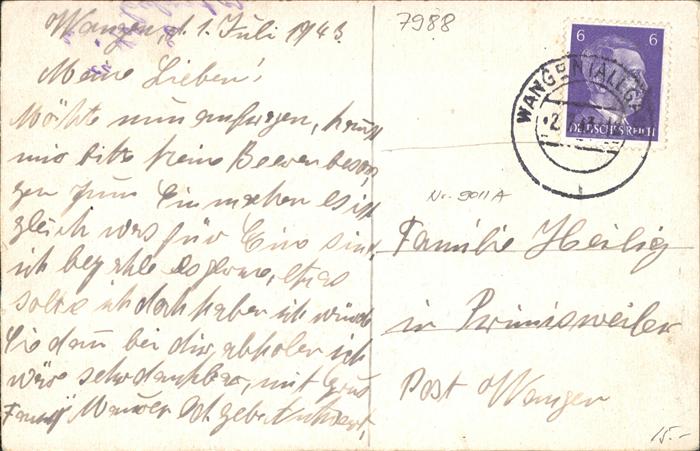 Wangen, d. 1. Juli 1943
Meine Lieben!
Möchte nun anfragen, kannst
mir bitte keine Beeren besor,
gen zum Einmachen es ist
gleich was für Eine sind,
ich bezahle es gerne, etwas
sollte ich doch haben ich würde
Sie dan bei dir abholen ich
wäre sehr dankbar, mit Gruß
7988
6 6
DEUTSCHES REICH
WANGEN (ALLGÄU)
Nr. 9011 A
Familie Heilig
in Primisweiler
Post Wangen
15.-